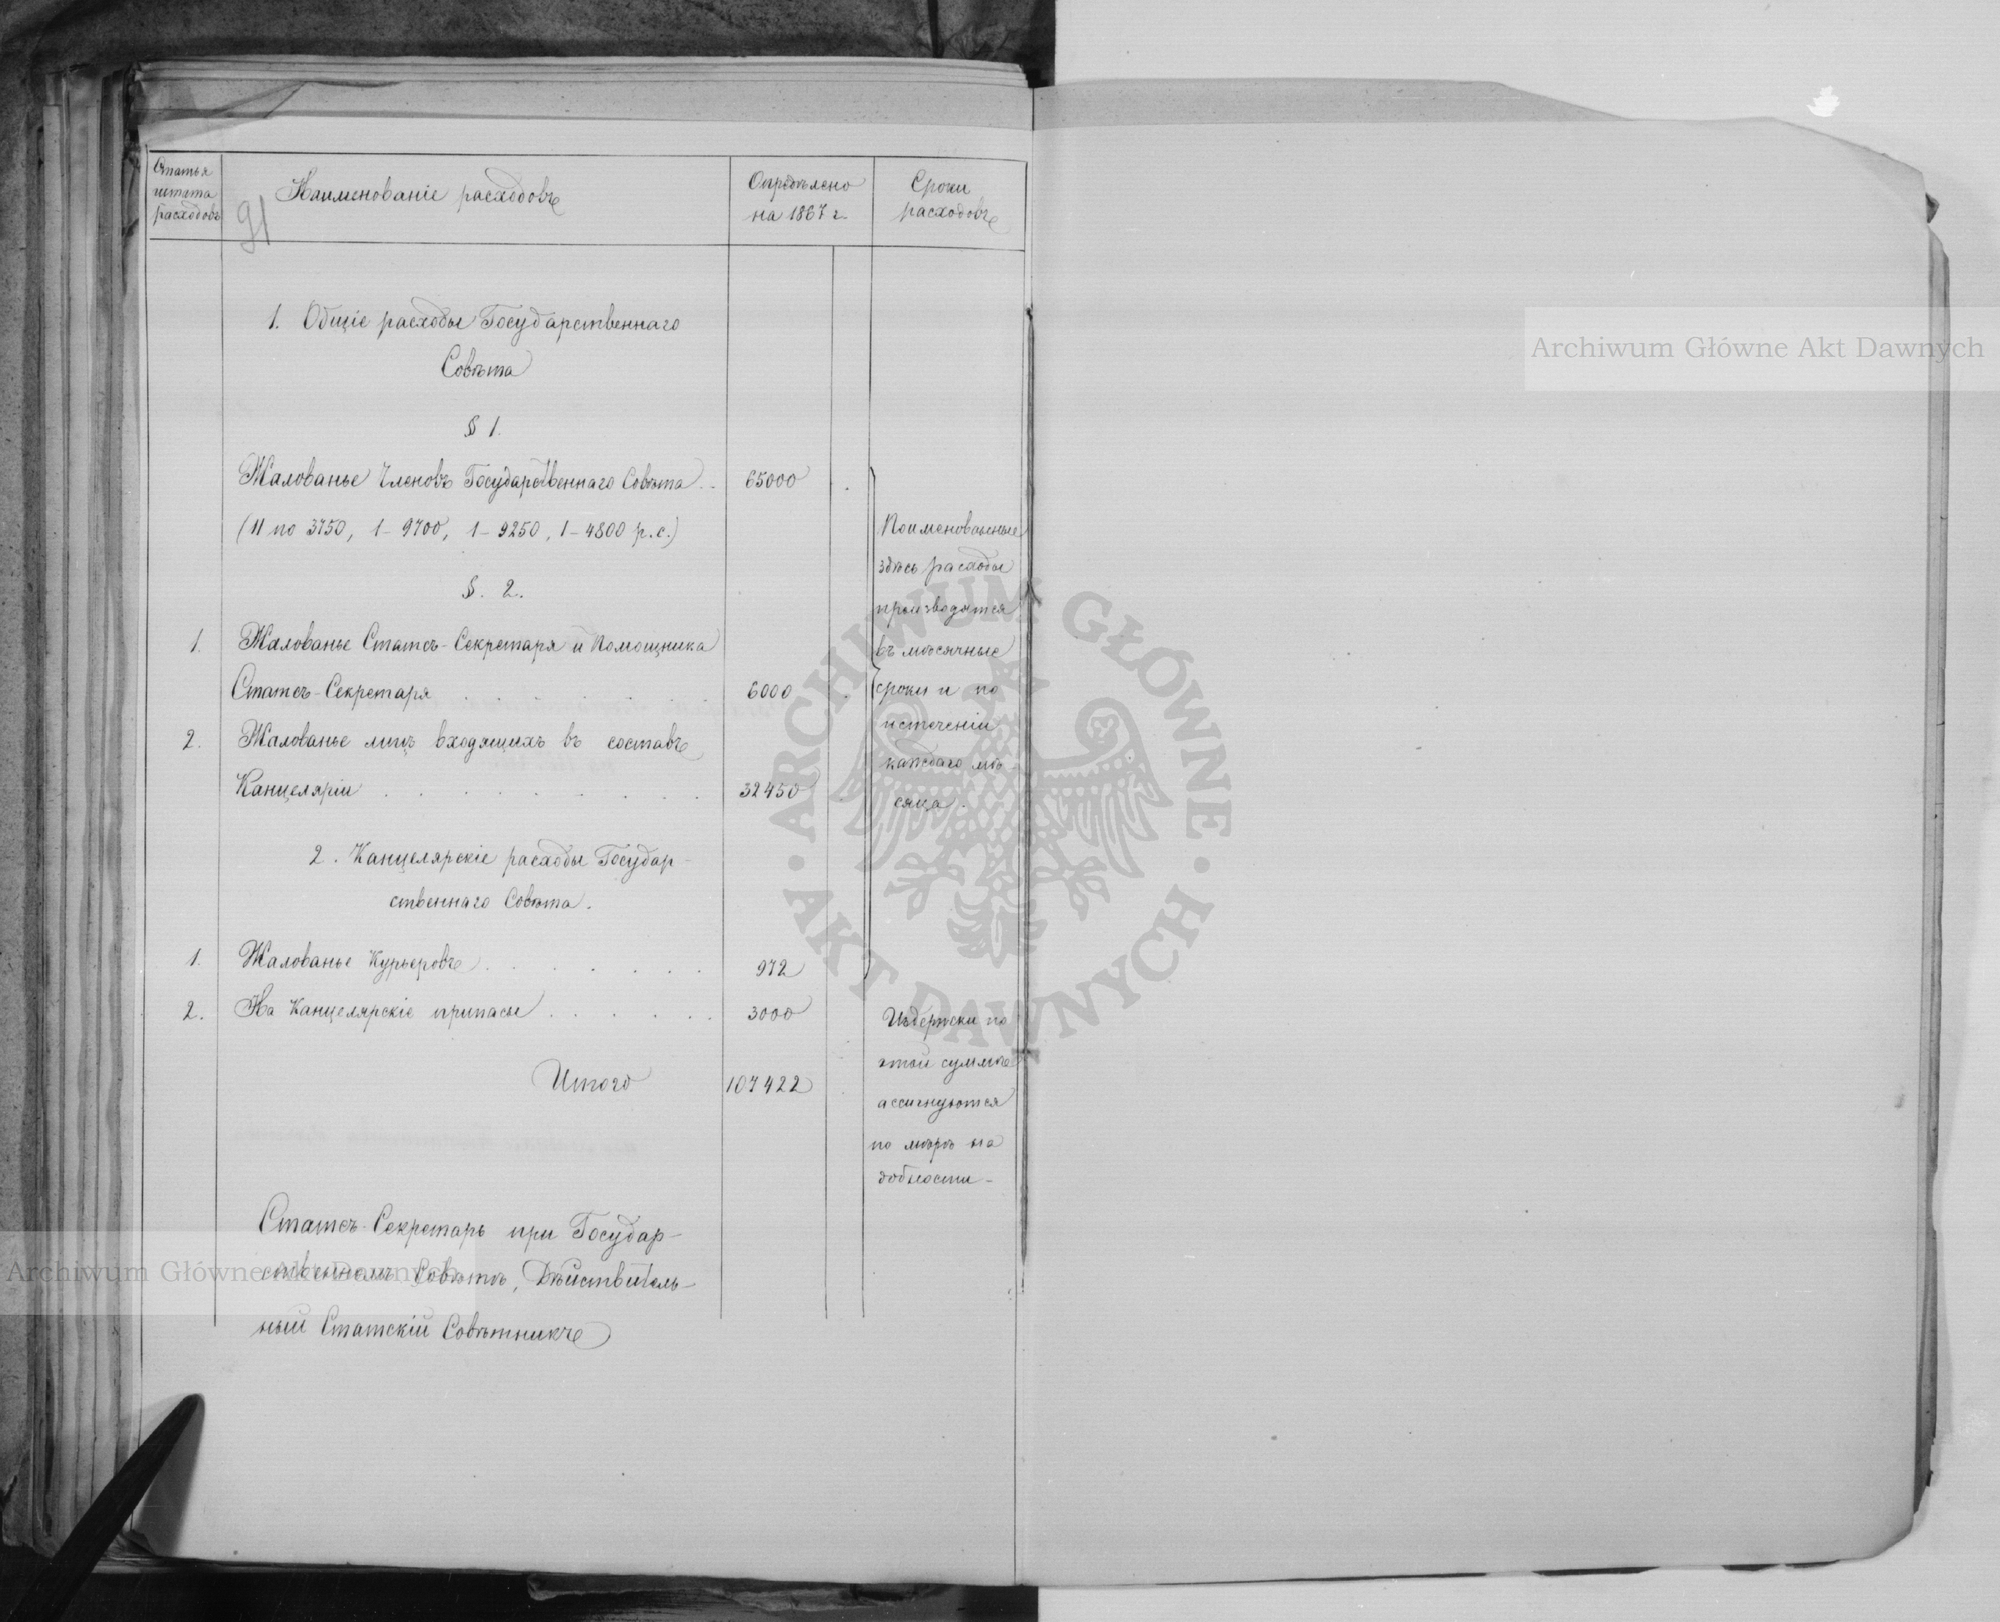 Статья
штата
расходовъ
Наименованіе расходовъ
Опредѣлено
на 1867 г.
Сроки
расходовъ
91
1. Общіе расходы Государственнаго
Совѣта
§ 1.
Жалованье Членовъ Государственнаго Совѣта .. 65000 .
(11 по 3750, 1 – 9700, 1 – 9250, 1 – 4800 р. с.)
§. 2.
1. Жалованье Статсъ-Секретаря и Помощника
Статсъ-Секретаря . . . . . . 6000 .
2. Жалованье лицъ входящихъ въ составъ
Канцеляріи . . . . . . . . . 32450
2. Канцелярскіе расходы Государ-
ственнаго Совѣта.
1. Жалованье Курьеровъ . . . . . . . 972
2. На Канцелярскіе припасы . . . . . . 3000
Итого 107422
Поименованные
здѣсь расходы
производятся
въ мѣсячные
сроки и по
истеченіи
каждаго мѣ-
сяца.
Издержки по
этой суммѣ
ассигнуются
по мѣрѣ на
добности –
Статсъ-Секретарь при Государ-
ственномъ Совѣтѣ, Дѣйствитель-
ный Статскій Совѣтникъ
Archiwum Główne Akt Dawnych
Archiwum Główne Akt Dawnych
ARCHIWUM GŁÓWNE · AKT DAWNYCH ·